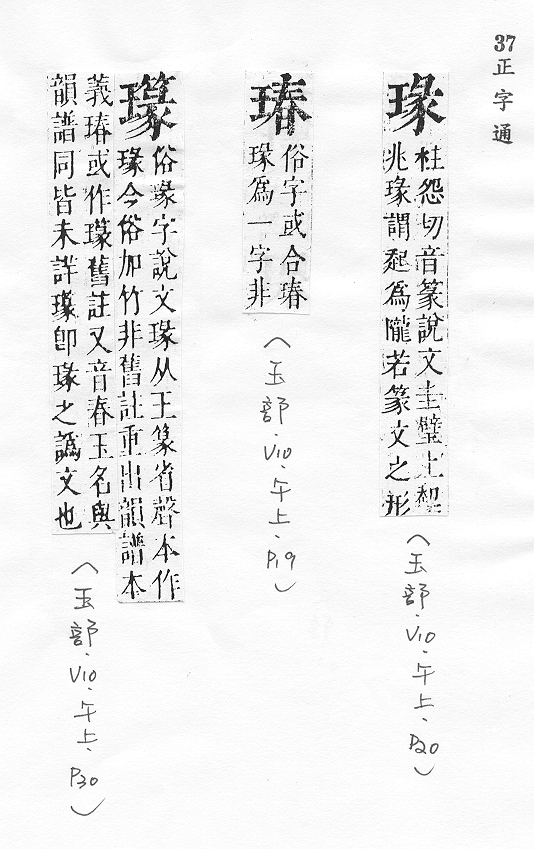 37
正字通
瑑
柱怨切音篆說文圭璧上起
兆瑑謂起爲隴若篆文之形
(玉部.V10.午上.P20)
瑃
俗字或合瑃
瑑爲一字非
(玉部.V10.午上.P19)
瑑今俗加竹非舊註重出韻譜本
俗瑑字說文瑑从王篆省聲本作
義瑃或作瑑舊註又音春玉名與
韻譜同皆未詳瑑卽瑑之譌文也
(玉部.V10.午上.P30)